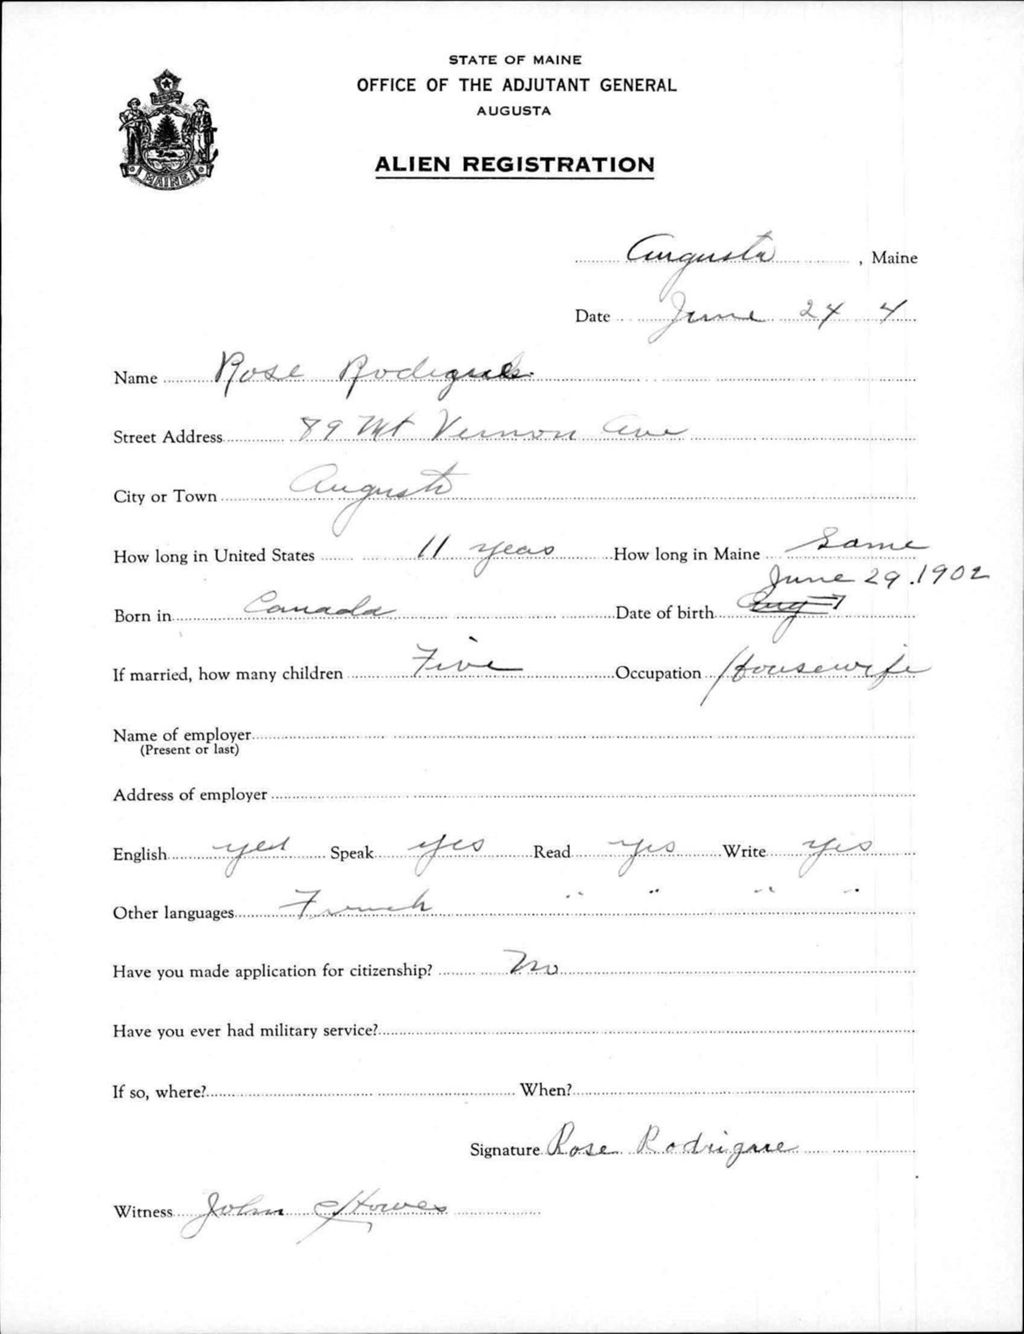 STATE OF MAINE
OFFICE OF THE ADJUTANT GENERAL
AUGUSTA
ALIEN REGISTRATION
MAINE
Augusta, Maine
Date June 24 4
Name Rose
Street Address 89 Mt Vernon Ave
City or Town Augusta
How long in United States 11 years How long in Maine Same
June 29.1902
Born in Canada Date of birth Aug 7
If married, how many children Five Occupation Housewife
Name of employer
(Present or last)
Address of employer
English yes Speak yes Read yes Write yes
Other languages French " " " "
Have you made application for citizenship? No
Have you ever had military service?
If so, where? When?
Signature Rose Rodrigue
Witness John Howes